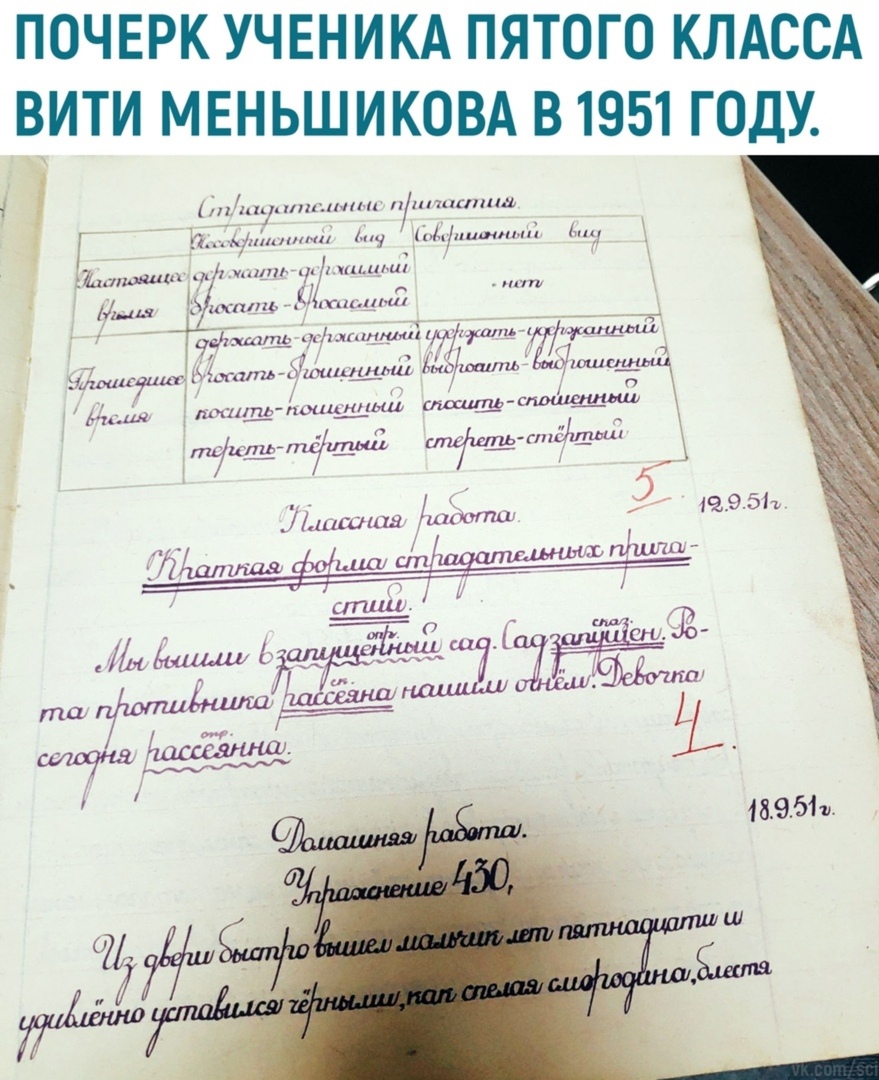 ПОЧЕРК УЧЕНИКА ПЯТОГО КЛАССА
ВИТИ МЕНЬШИКОВА В 1951 ГОДУ.
Страдательные причастия.
Несовершенный вид Совершенный вид
Настоящее держать-держимый
время бросать-бросаемый - нет
держать-держанный удержать-удержанный
Прошедшее бросать-брошенный выбросить-выброшенный
время косить-кошенный скосить-скошенный
тереть-тёртый стереть-стёртый
5.
Классная работа. 12.9.51г.
Краткая форма страдательных прича-
стий.
опр. сказ.
Мы вышли в запущенный сад. Сад запущен. Ро-
ск.
та противника рассеяна нашим огнём. Девочка
опр.
сегодня рассеянна.
4.
Домашняя работа. 18.9.51г.
Упражнение 430,
Из двери быстро вышел мальчик лет пятнадцати и
удивлённо уставился чёрными, как спелая смородина, блестя
vk.com/sci